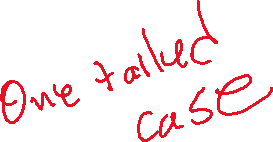 One tailed
case